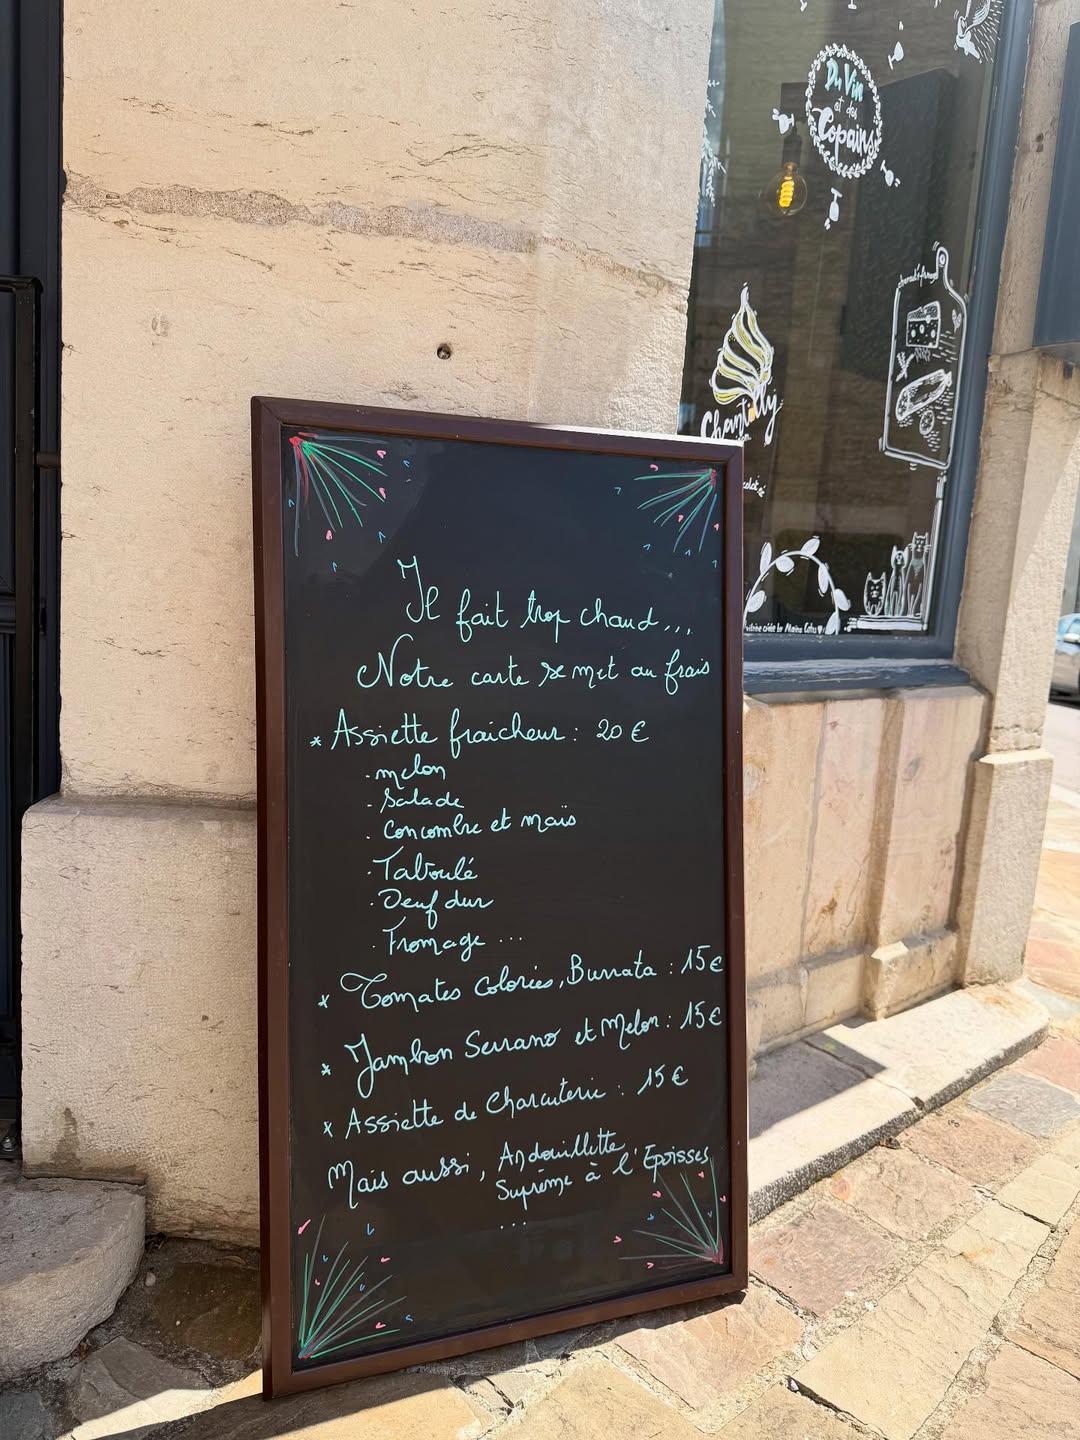 Du Vin
et des
Copains
Chantilly
Il fait trop chaud...
Notre carte se met au frais
* Assiette fraicheur : 20 €
. melon
. Salade
. Concombre et maïs
. Taboulé
. Oeuf dur
. Fromage ...
* Tomates Colorées, Burrata : 15 €
* Jambon Serrano et Melon : 15 €
* Assiette de Charcuterie : 15 €
Mais aussi, Andouillette
Suprême à l'Epoisses
...